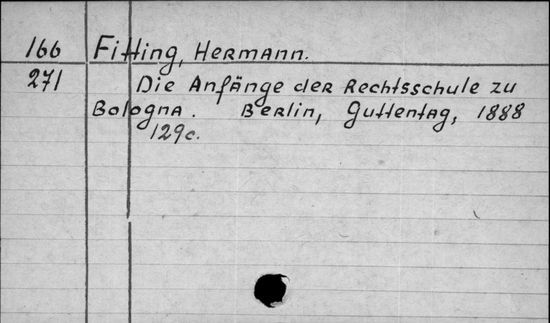 166 Fitting, Hermann.
271 Die Anfänge der Rechtsschule zu
Bologna. Berlin, Guttentag, 1888
129c.